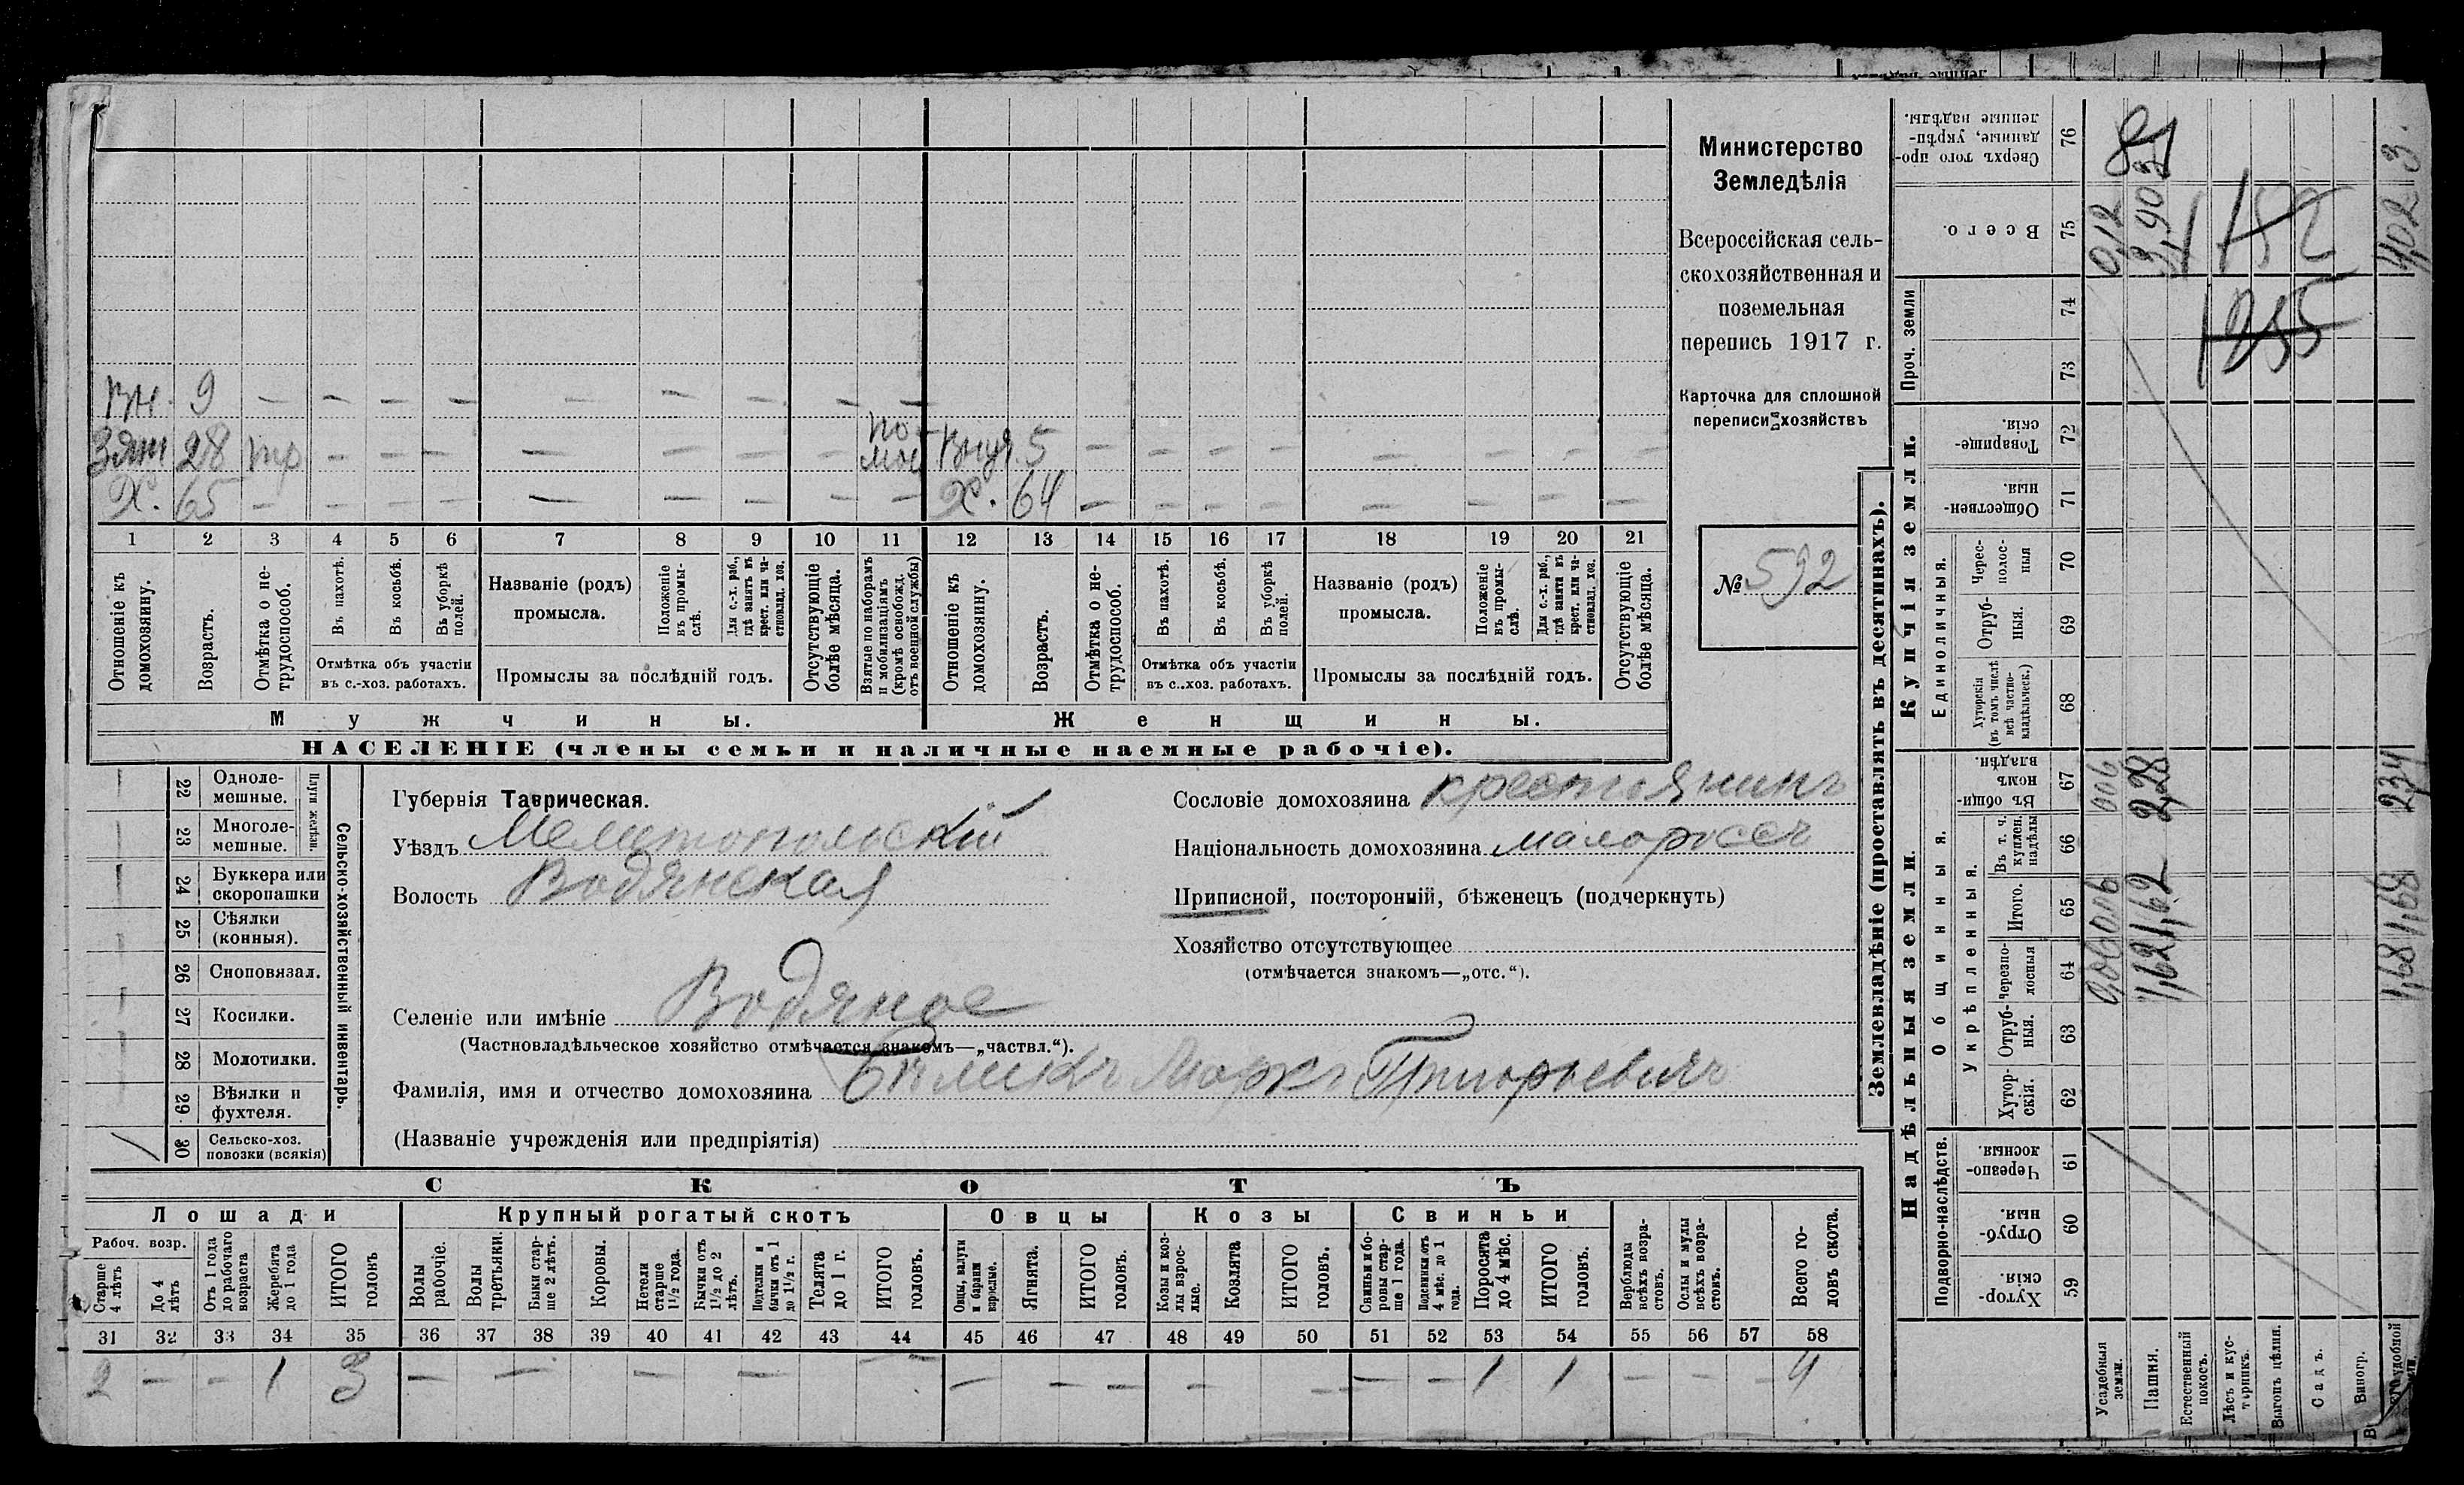 Министерство
Земледѣлія
Всероссійская сель-
скохозяйственная и
поземельная
перепись 1917 г.
Карточка для сплошной
переписи хозяйствъ
№ 592
Вн. 9 — — — — — — — — —
Зять 28 тр — — — — — — — Внуч. 5 — — — — — — — —
Х. 65 — — — — — — — — — Х. 64 — — — — — — — —
1 2 3 4 5 6 7 8 9 10 11 12 13 14 15 16 17 18 19 20 21
Отношеніе къ домохозяину.
Возрастъ.
Отмѣтка о не-трудоспособ.
Въ пахотѣ.
Въ косьбѣ.
Въ уборкѣ полей.
Отмѣтка объ участіи
въ с.-хоз. работахъ.
Названіе (родъ)
промысла.
Положеніе въ промы-слѣ.
Для с.-х. раб., гдѣ занятъ въ крест. или ча-стновлад. хоз.
Промыслы за послѣдній годъ.
Отсутствующіе болѣе мѣсяца.
Взятые по наборамъ и мобилизаціямъ (кромѣ освобожд. отъ военной службы)
Отношеніе къ домохозяину.
Возрастъ.
Отмѣтка о не-трудоспособ.
Въ пахотѣ.
Въ косьбѣ.
Въ уборкѣ полей.
Отмѣтка объ участіи
въ с.-хоз. работахъ.
Названіе (родъ)
промысла.
Положеніе въ промы-слѣ.
Для с.-х. раб., гдѣ занята въ крест. или ча-стновлад. хоз.
Промыслы за послѣдній годъ.
Отсутствующіе болѣе мѣсяца.
Мужчины. Женщины.
НАСЕЛЕНІЕ (члены семьи и наличные наемные рабочіе).
Сельско-хозяйственный инвентарь.
Плуги желѣзн.
22 Одноле-мешные.
23 Многоле-мешные.
24 Буккера или скоропашки
25 Сѣялки (конныя).
26 Сноповязал.
27 Косилки.
28 Молотилки.
29 Вѣялки и фухтеля.
30 Сельско-хоз. повозки (всякія)
Губернія Таврическая.
Уѣздъ Мелитопольскій
Волость Водянская
Сословіе домохозяина крестьянинъ
Національность домохозяина малороссъ
Приписной, посторонній, бѣженецъ (подчеркнуть)
Хозяйство отсутствующее
(отмѣчается знакомъ—„отс.“).
Селеніе или имѣніе Водяное
(Частновладѣльческое хозяйство отмѣчается знакомъ—„частвл.“).
Фамилія, имя и отчество домохозяина Маркъ Григорьевичъ
(Названіе учрежденія или предпріятія)
СКОТЪ
Лошади Крупный рогатый скотъ Овцы Козы Свиньи
Рабоч. возр.
Старше 4 лѣтъ
До 4 лѣтъ
Отъ 1 года до рабочаго возраста
Жеребята до 1 года
ИТОГО головъ
Волы рабочіе.
Волы третьяки.
Быки стар-ше 2 лѣтъ.
Коровы.
Нетели старше 1½ года.
Бычки отъ 1½ до 2 лѣтъ.
Подтелки и бычки отъ 1 до 1½ г.
Телята до 1 г.
ИТОГО головъ.
Овцы, валухи и бараны взрослые.
Ягнята.
ИТОГО головъ.
Козы и коз-лы взрос-лые.
Козлята
ИТОГО головъ.
Свиньи и бо-ровы стар-ше 1 года.
Подсвинки отъ 4 мѣс. до 1 года.
Поросята до 4 мѣс.
ИТОГО головъ.
Верблюды всѣхъ возра-стовъ.
Ослы и мулы всѣхъ возра-стовъ.
Всего го-ловъ скота.
31 32 33 34 35 36 37 38 39 40 41 42 43 44 45 46 47 48 49 50 51 52 53 54 55 56 57 58
2 — — 1 3 — — — — — — — — — — — 1 1 — — — 4
Землевладѣніе (проставлять въ десятинахъ).
Надѣльныя земли. Купчія земли. Проч. земли
Подворно-наслѣдств. Общинныя. Единоличныя.
Укрѣпленныя.
Хутор-скія. 59
Отруб-ныя. 60
Черезпо-лосныя. 61
Хутор-скія. 62
Отруб-ныя. 63
Черезпо-лосныя 64
Итого. 65
Въ т. ч. куплен. надѣлы 66
Въ общи-номъ владѣн. 67
Хуторскія (въ томъ числѣ всѣ частно-владѣльческ.) 68
Отруб-ныя. 69
Черес-полос-ныя 70
Обществен-ныя. 71
Товарище-скія. 72
73
74
Всего. 75
Сверхъ того про-данные, укрѣп-ленные надѣлы. 76
Усадебныя земли. 0,06 0,06 006 0,12
Пашня. 1,62 1,62 2,28 3,903
Естественный покосъ.
Лѣсъ и кус-тарникъ.
Выгонъ цѣлин.
Садъ.
Виногр.
удобной 1,68 1,68 234 4,023
152
1255